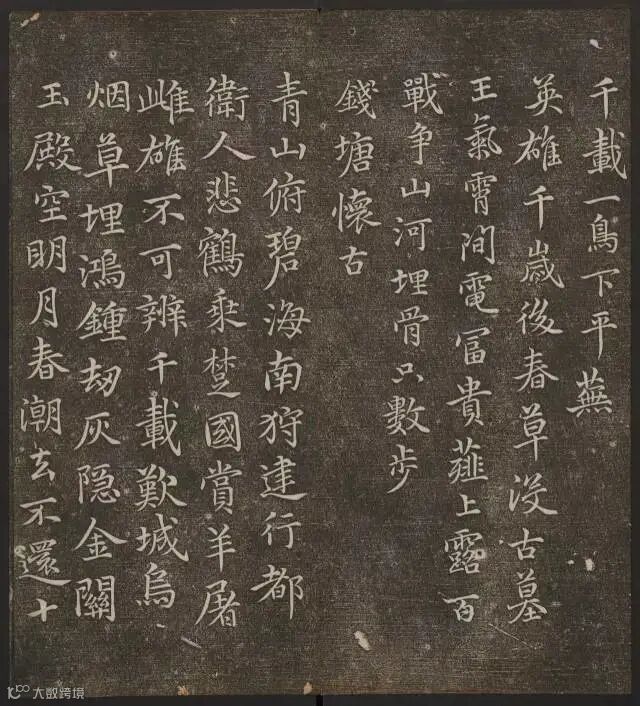 千載一鳥下平蕪
英雄千嵗後春草没古墓
王氣霄間電冨貴薤上露百
戰争山河埋骨只數步
錢塘懷古
青山俯碧海南狩建行都
衛人悲鶴乘楚國賞羊屠
雌雄不可辨千載歎城烏
烟草埋鴻鍾刼灰隐金關
玉殿空明月春潮去不還十
大数跨境